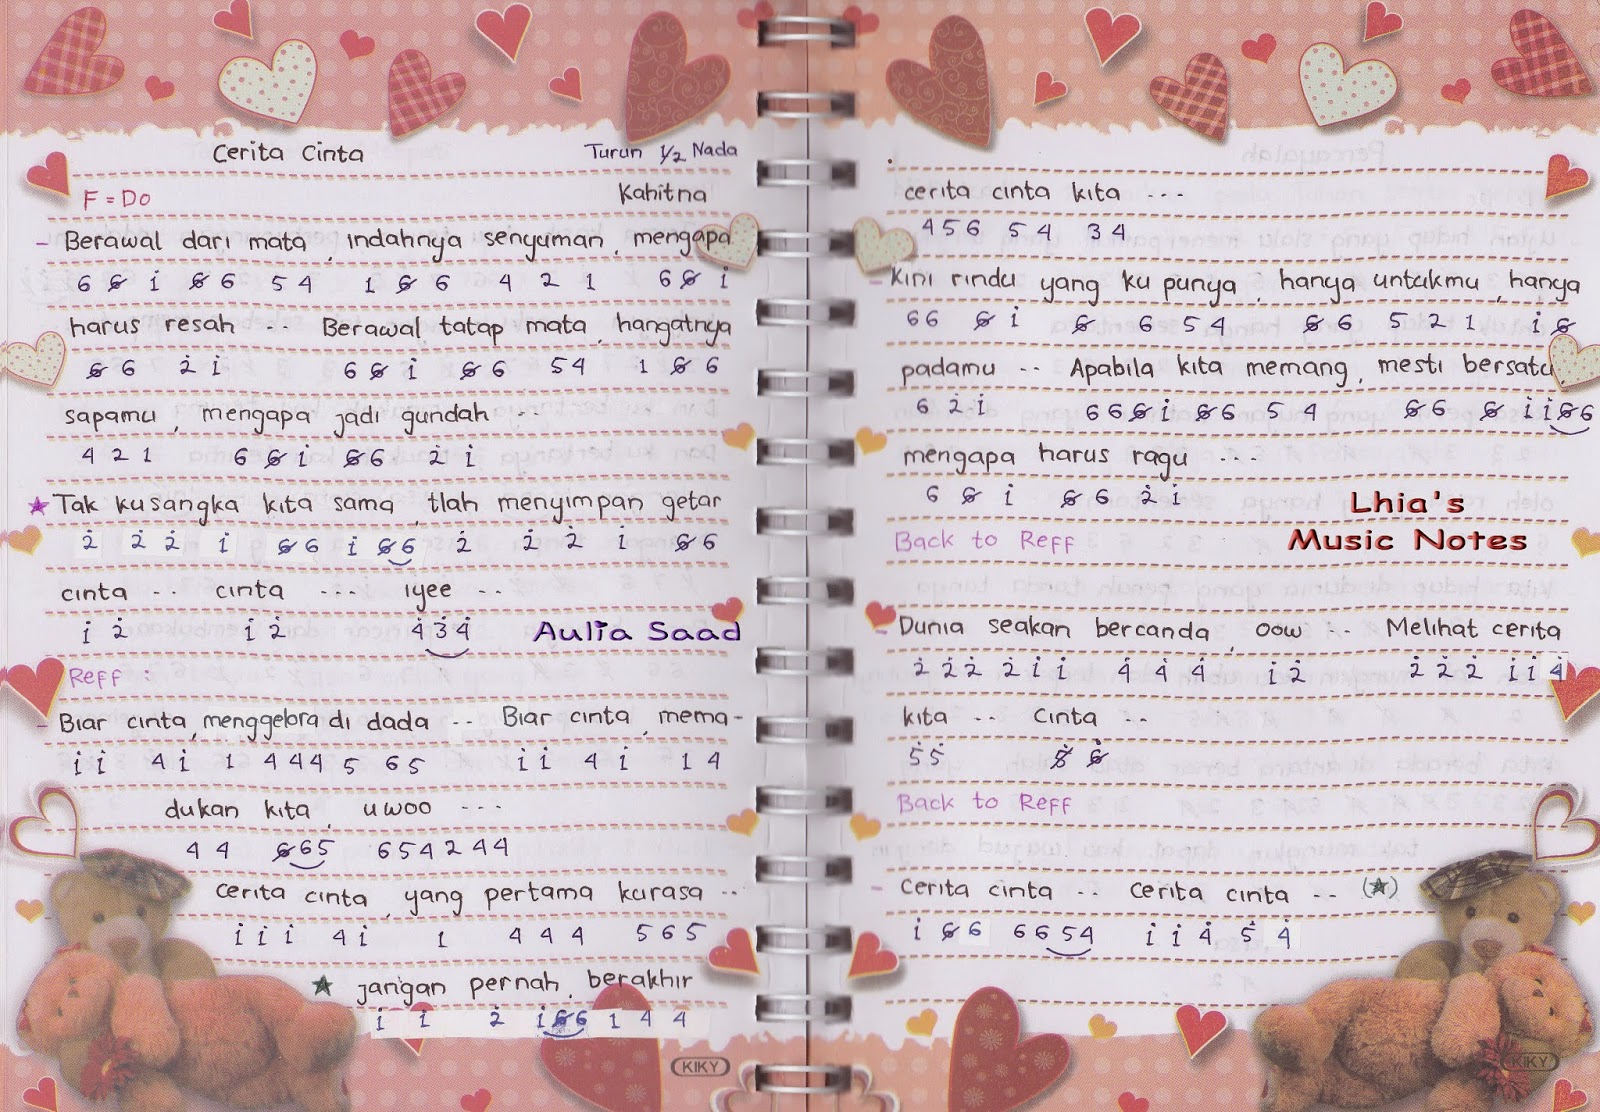 Cerita Cinta Turun 1/2 Nada
F = Do Kahitna
- Berawal dari mata, indahnya senyuman, mengapa
6 6̸ 1̇ 6̸ 6 5 4 1 6̸ 6 4 2 1 6 6̸ 1̇
harus resah --- Berawal tatap mata, hangatnya
6̸ 6 2̇ 1̇ 6 6̸ 1̇ 6̸ 6 5 4 1 6̸ 6
sapamu, mengapa jadi gundah ---
4 2 1 6 6̸ 1̇ 6̸ 6 2̇ 1̇
★ Tak kusangka kita sama, tlah menyimpan getar
2̇ 2̇ 2̇ 1̇ 6̸ 6 1̇ 6̸ 6 2̇ 2̇ 2̇ 1̇ 6̸ 6
cinta -- cinta --- iyee --
1̇ 2̇ 1̇ 2̇ 4̇ 3̇ 4̇
Aulia Saad
Reff :
- Biar cinta, menggelora di dada -- Biar cinta, mema-
1̇ 1̇ 4 1̇ 1 4 4 4 5 6 5 1̇ 1̇ 4 1̇ 1 4
dukan kita, uwoo ---
4 4 6̸ 6 5 6 5 4 2 4 4
cerita cinta, yang pertama kurasa --
1̇ 1̇ 1̇ 4 1̇ 1 4 4 4 5 6 5
★ jangan pernah, berakhir
1̇ 1 2̇ 1̇ 6̸ 6 1 4 4
KIKY
cerita cinta kita ---
4 5 6 5 4 3 4
- Kini rindu yang ku punya, hanya untukmu, hanya
6 6 6̸ 1̇ 6̸ 6 5 4 6̸ 6 5 2 1 1̇ 6̸
padamu -- Apabila kita memang, mesti bersatu,
6 2̇ 1̇ 6 6 6̸ 1̇ 6̸ 6 5 4 6̸ 6 6̸ 1̇ 1̇ 6̸ 6
mengapa harus ragu ---
6 6̸ 1̇ 6̸ 6 2̇ 1̇
Lhia's
Music Notes
Back to Reff
- Dunia seakan bercanda, oow --- Melihat cerita
2̇ 2̇ 2̇ 2̇ 1̇ 1̇ 4̇ 4̇ 4̇ 1̇ 2̇ 2̇ 2̇ 2̇ 1̇ 1̇ 4̇
kita -- cinta --
5̇ 5̇ 5̸̇ 6̸̇
Back to Reff
- Cerita cinta -- cerita cinta -- (★)
1̇ 6̸ 6 6 6 5 4 1̇ 1̇ 4̇ 5̇ 4̇
KIKY